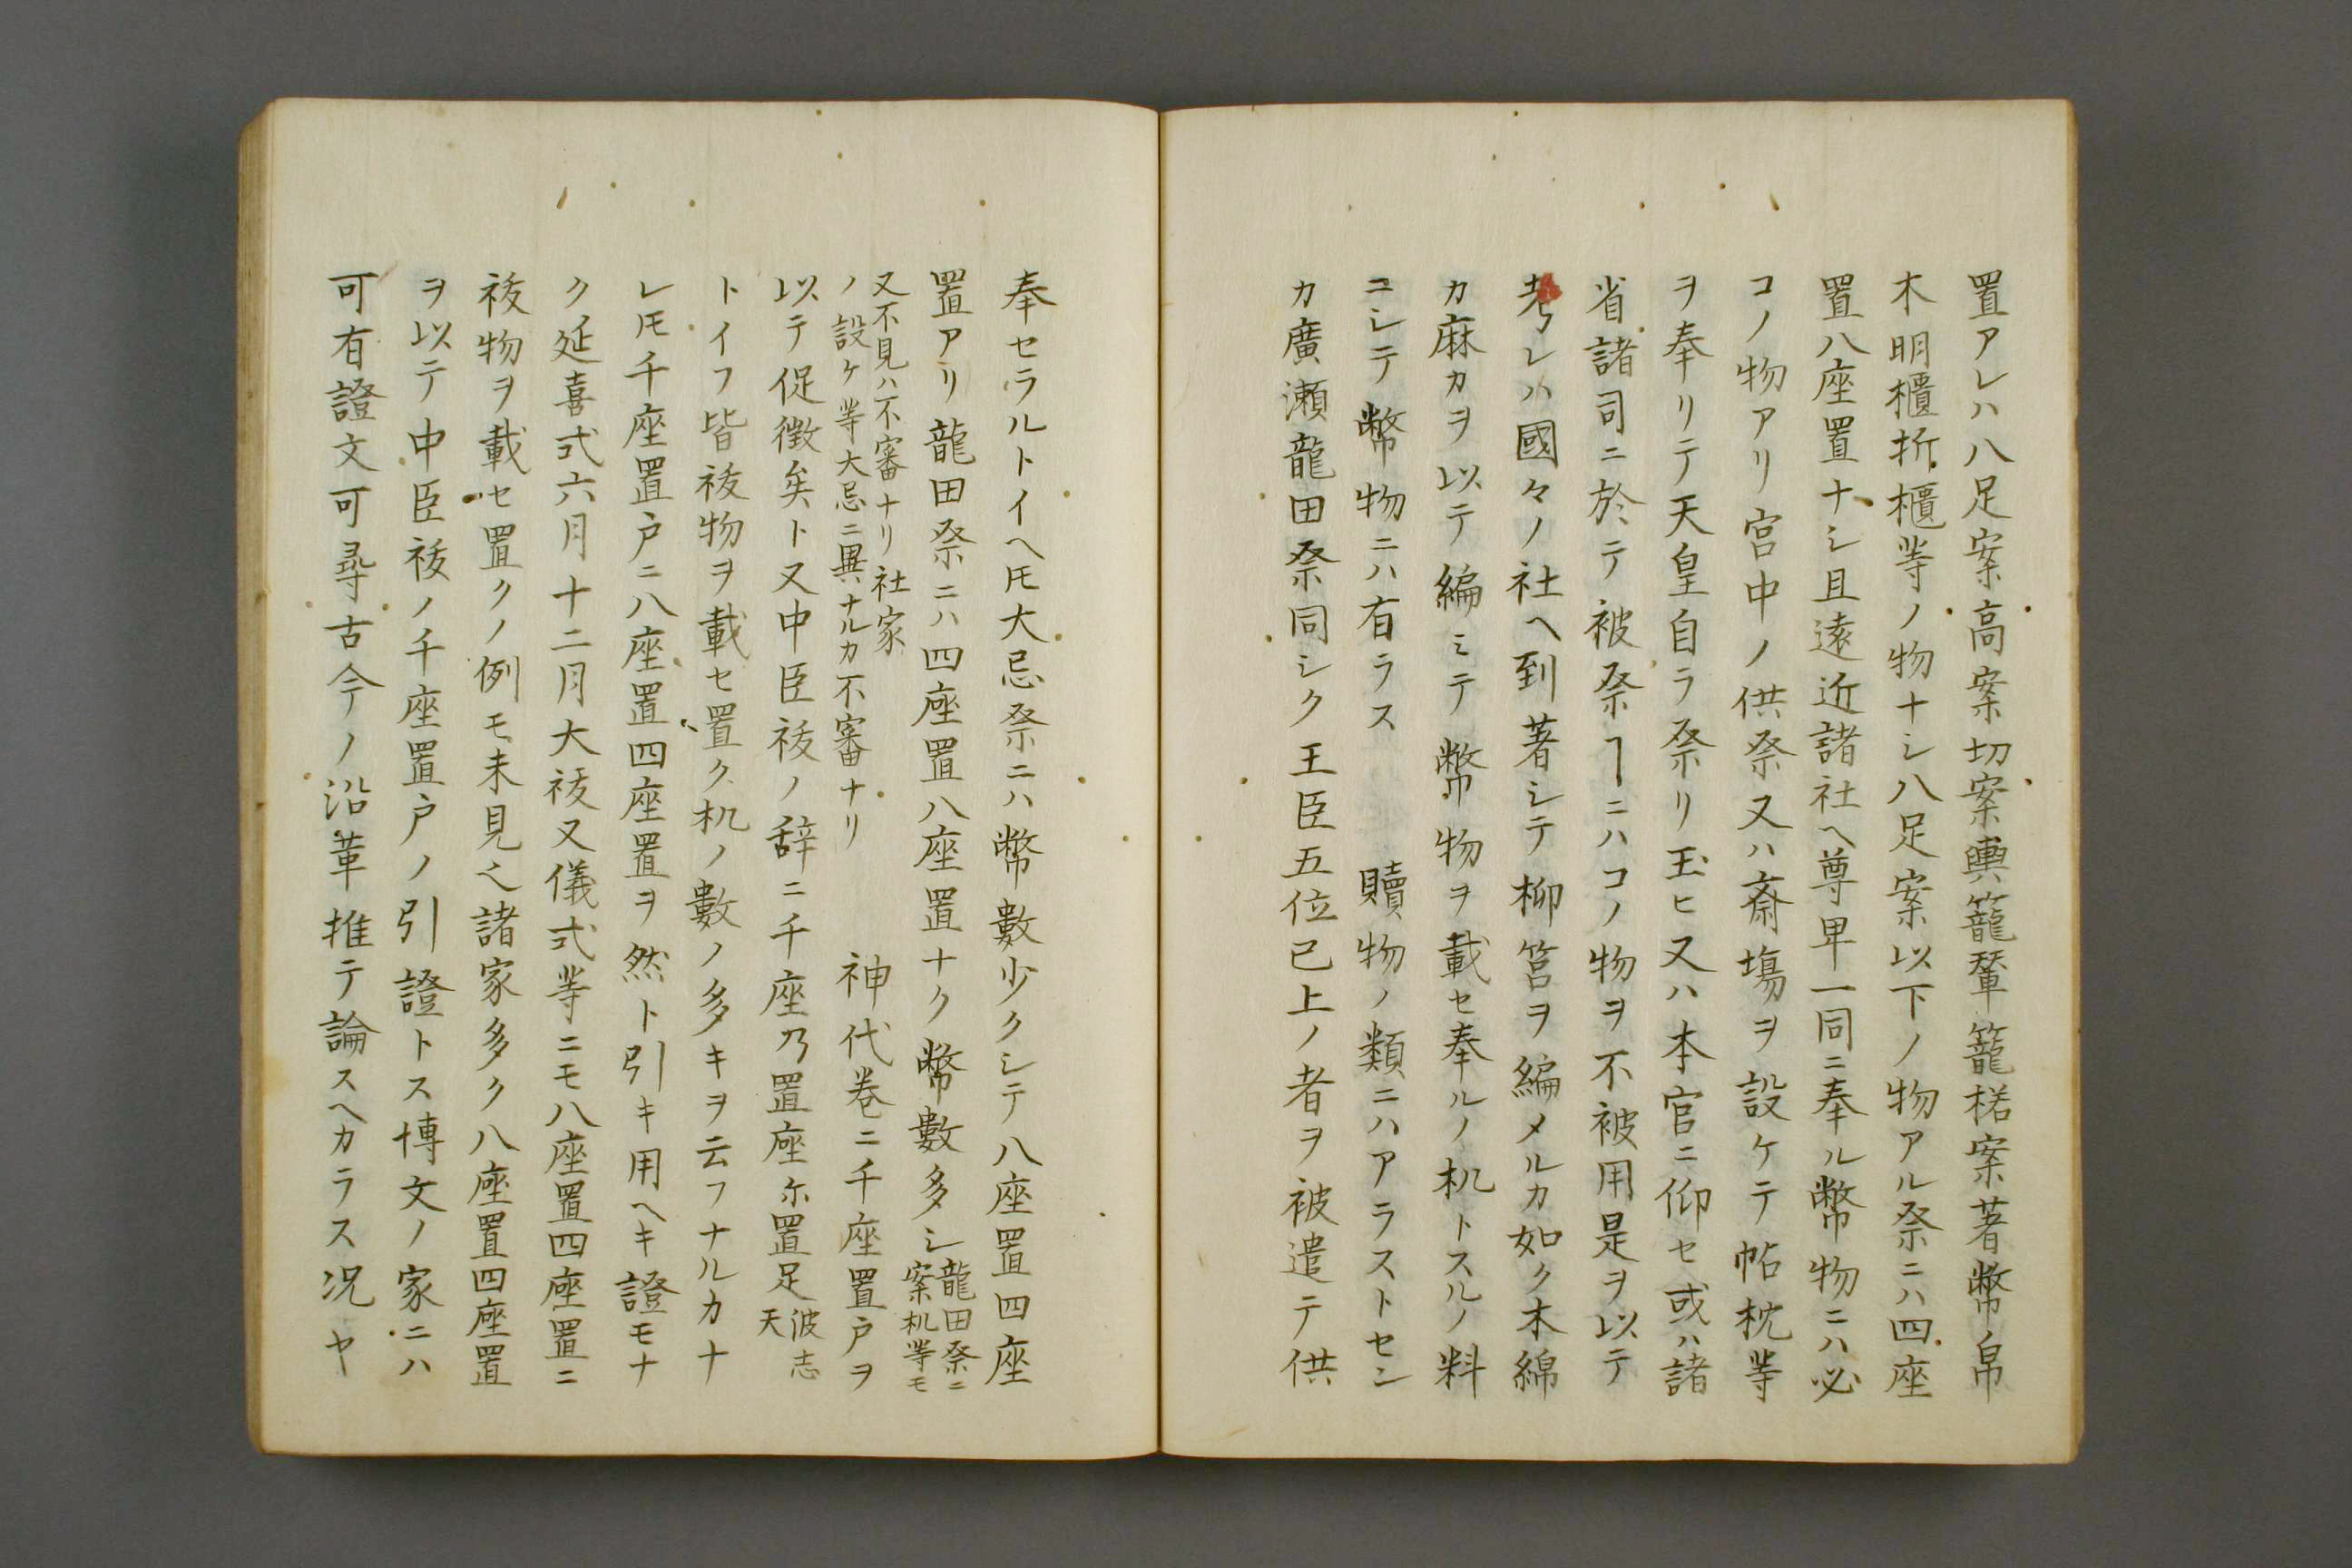 置アレハ八足案高案切案輿籠輦籠桰案著幣ノ帛
木明櫃折櫃等ノ物ナシ八足案以下ノ物アル祭ニハ四座
置八座置ナシ且遠近諸社ヘ尊卑一同ニ奉ル幣物ニハ必
コノ物アリ宮中ノ供祭又ハ斎塲ヲ設ケテ帖枕等
ヲ奉リテ天皇自ラ祭リ玉ヒ又ハ本官ニ仰セ或ハ諸
省諸司ニ於テ被祭ヿニハコノ物ヲ不被用是ヲ以テ
考レハ國々ノ社ヘ到著シテ柳筥ヲ編メルカ如ク木綿
カ麻カヲ以テ編ミテ幣物ヲ載セ奉ルノ机トスルノ料
ニシテ幣物ニハ有ラス　贖物ノ類ニハアラストセン
カ廣瀬龍田祭同シク王臣五位已上ノ者ヲ被遣テ供
奉セラルトイヘ𪜈大忌祭ニハ幣數少クシテ八座置四座
置アリ龍田祭ニハ四座置八座置ナク幣數多シ龍田祭ニ案机等モ
又不見ハ不審ナリ社家ノ設ケ等大忌ニ異ナルカ不審ナリ　神代巻ニ千座置戸ヲ
以テ促徴矣ト又中臣祓ノ辞ニ千座乃置座尓置足波志天
トイフ皆祓物ヲ載セ置ク机ノ數ノ多キヲ云フナルカナ
レ𪜈千座置戸ニ八座置四座置ヲ然ト引キ用ヘキ證モナ
ク延喜式六月十二月大祓又儀式等ニモ八座置四座置ニ
祓物ヲ載セ置クノ例モ未見之諸家多ク八座置四座置
ヲ以テ中臣祓ノ千座置戸ノ引證トス博文ノ家ニハ
可有證文可尋古今ノ沿革推テ論スヘカラス况ヤ